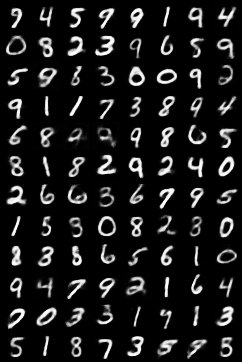 9 4 5 7 9 1 9 4
0 8 2 3 9 6 5 9
5 9 8 3 0 0 9 2
9 1 1 7 3 8 9 4
6 8 9 9 8 6 5
8 1 8 2 9 2 4 0
2 6 6 3 6 7 9 5
1 5 8 0 8 2 8 0
8 3 8 6 5 6 1 0
9 4 7 9 2 1 6 4
7 0 3 3 1 9 1 3
5 1 8 7 3 5 9 8